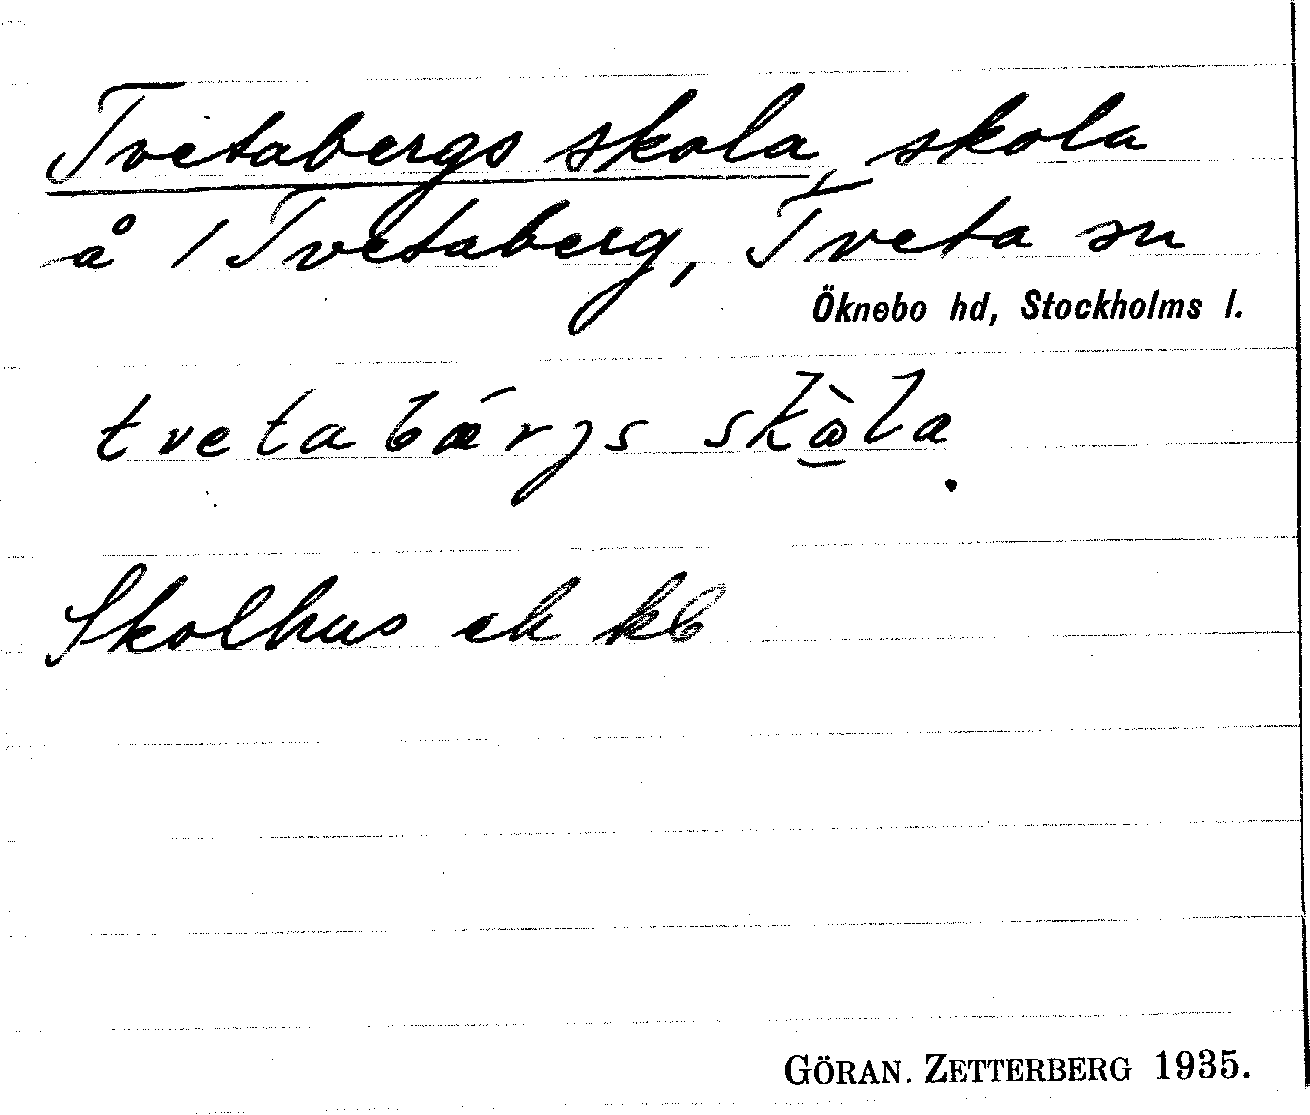 Tvetabergs skola, skola
å / Tvetaberg, Tveta sn
Öknebo hd, Stockholms l.
tvetabǽrjs skὼla.
Skolhus ek kb
GÖRAN. ZETTERBERG 1935.